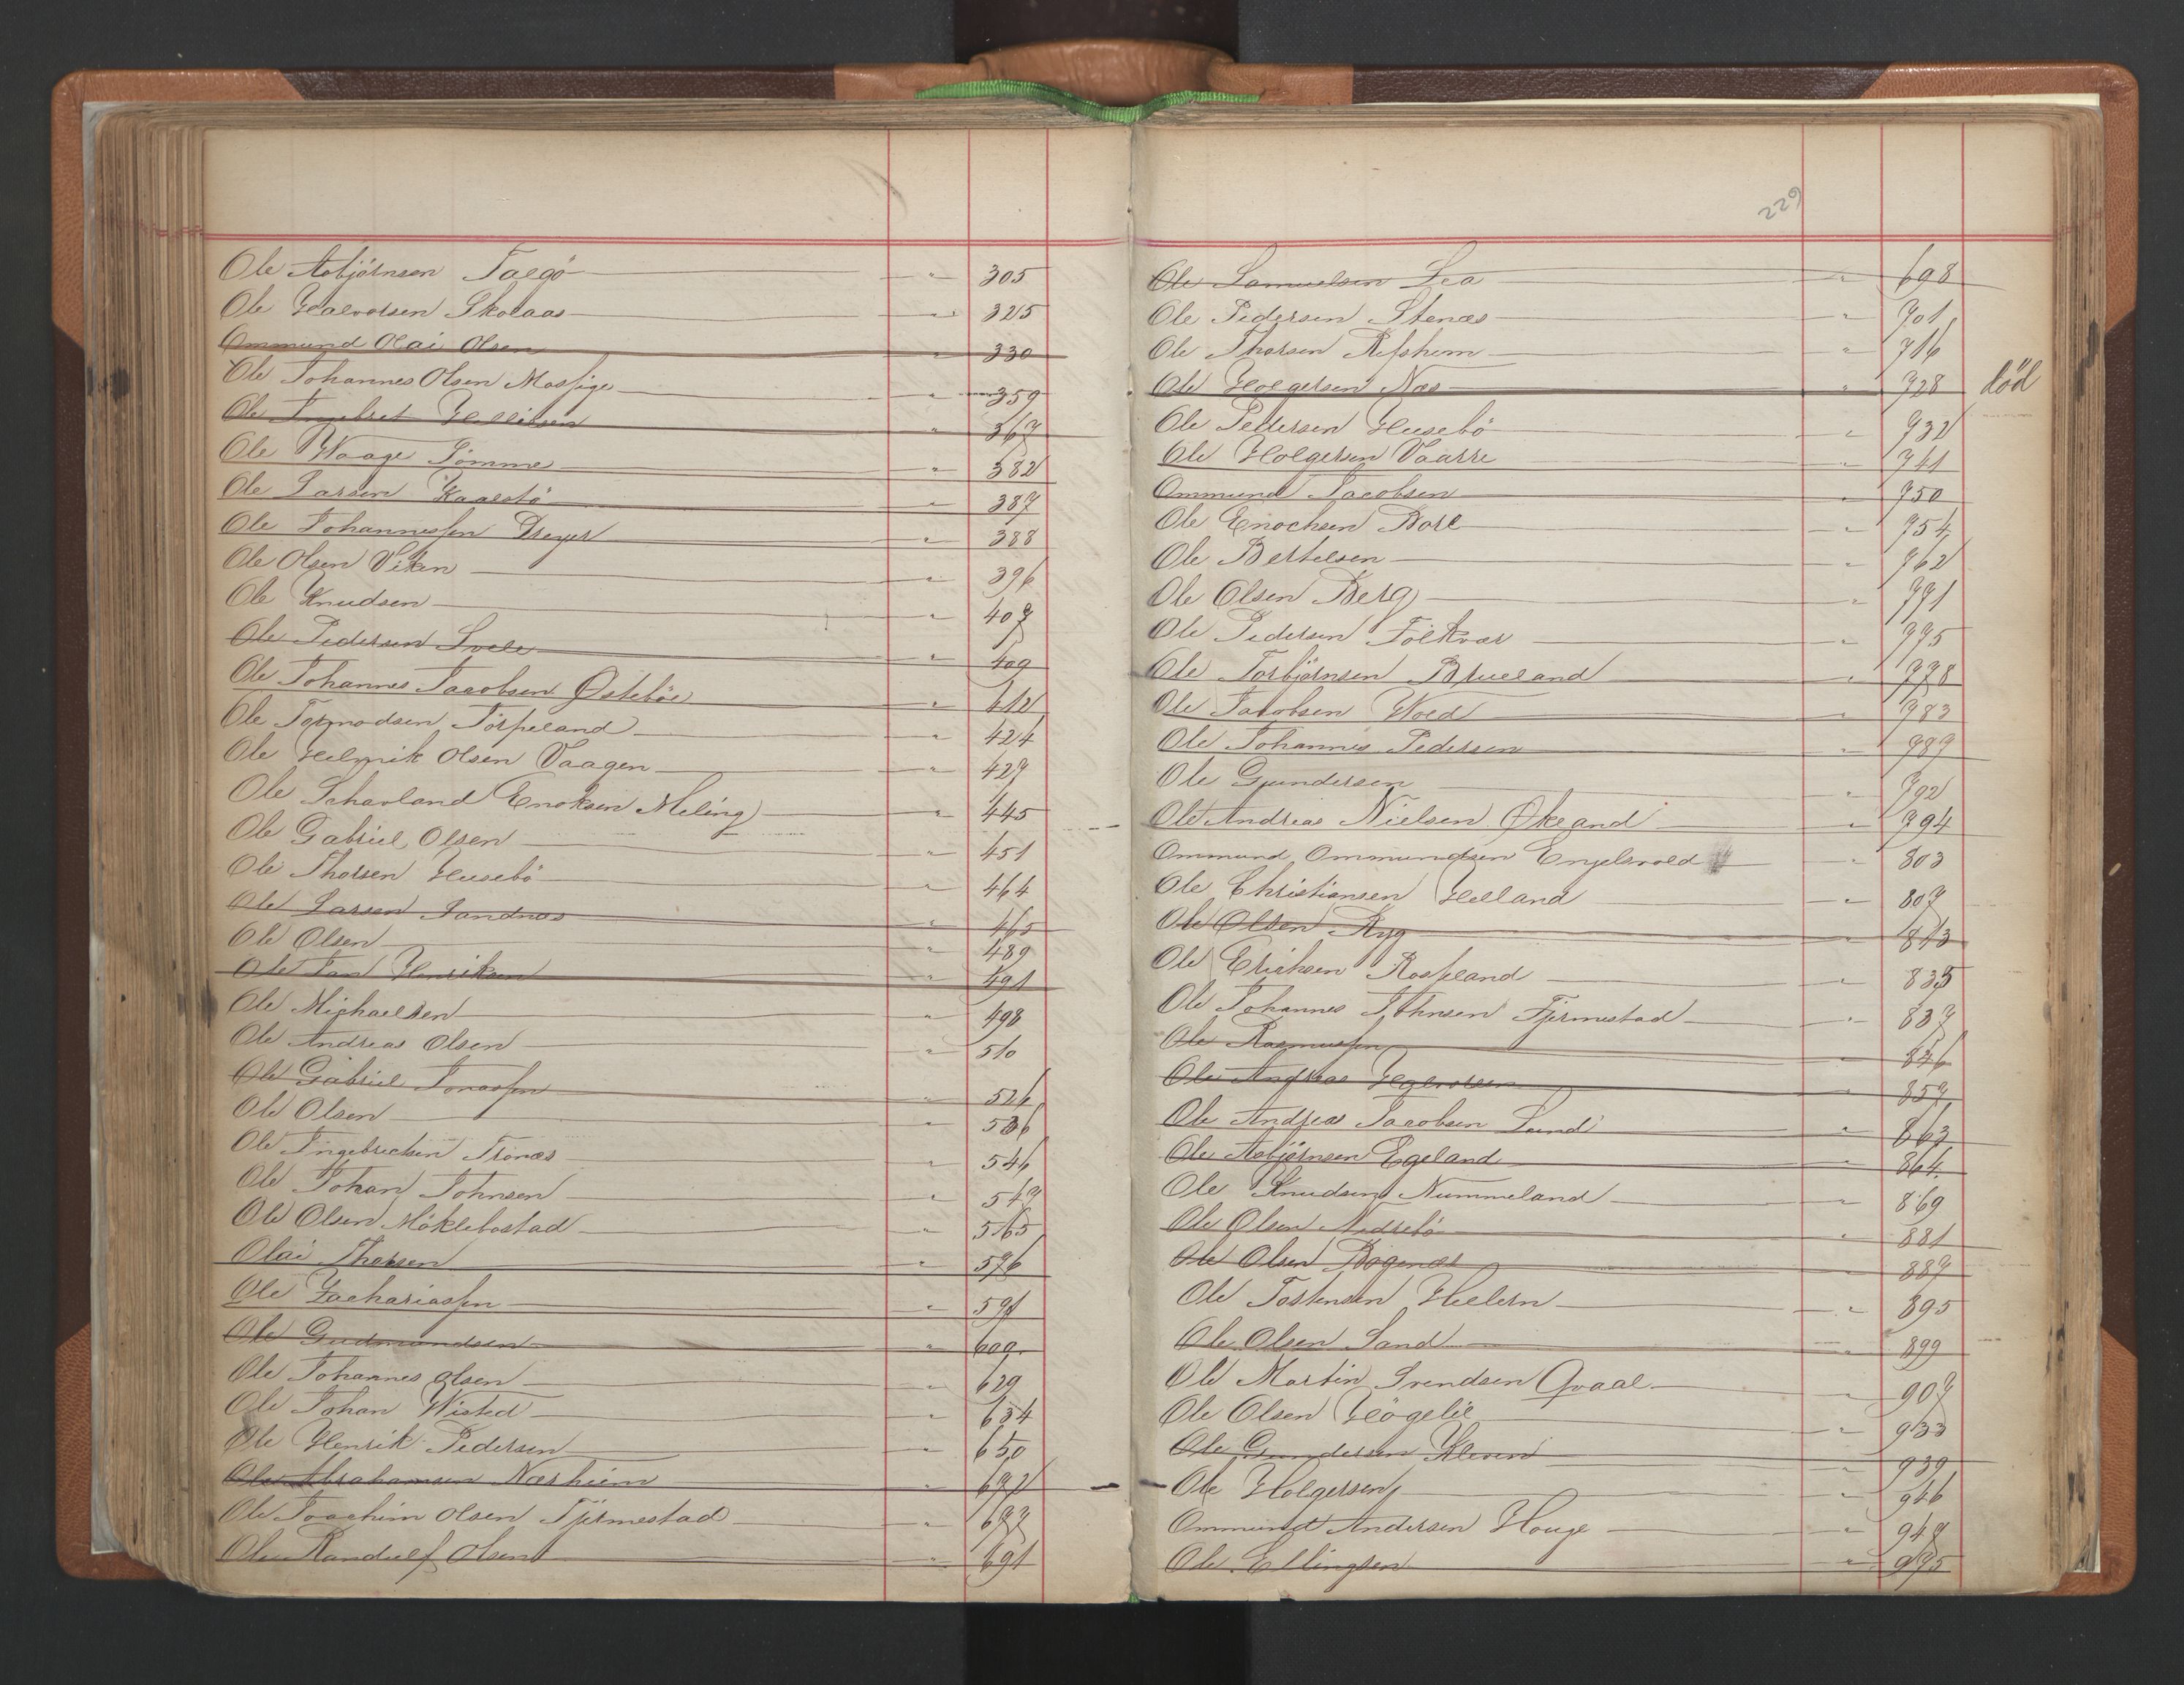 Ole Asbjörnsen Talgö " 305
Ole Halvorsen Skolaas " 325
Ommund Olai Olsen " 330
Ole Johannes Olsen Mossige " 359
Ole Ingebret " 367
Ole Waage Sömme " 382
Ole Larsen Kaalstö " 387
Ole Johannessen Dreyer " 388
Ole Olsen Viken " 396
Ole Knudsen " 407
Ole Pedersen Svele " 409
Ole Johannes Jacobsen Østeböe " 412
Ole Tormodsen Törpeland " 424
Ole Helmik Olsen Vaagen " 427
Ole Schavland Enoksen Meling " 445
Ole Gabriel Olsen " 451
Ole Thorsen Husebö " 464
Ole Larsen Sandnæs " 465
Ole Olsen " 489
Ole Jan Henriksen " 491
Ole Michaelsen " 498
Ole Andreas Olsen " 510
Ole Gabriel Jonassen " 526
Ole Olsen " 536
Ole Ingebretsen Trönæs " 546
Ole Johan Johnsen " 547
Ole Olsen Möklebostad " 565
Olai Thorsen " 576
Ole Zachariassen " 591
Ole Gudmundsen " 600
Ole Johannes Olsen " 629
Ole Johan Wisted " 634
Ole Henrik Pedersen " 650
Ole Abrahamsen Nærheim " 672
Ole Joachim Olsen Tjermestad " 677
Ole Randulf Olsen " 691
229
Ole Samuelsen Lea " 698
Ole Pedersen Stenæs " 701
Ole Thorsen Refsheim " 716
Ole Holgersen Næs " 728 död
Ole Pedersen Husebö " 732
Ole Holgersen Vaarre " 741
Ommund Jacobsen " 750
Ole Enochsen Bore " 754
Ole Bertelsen " 762
Ole Olsen Berg " 771
Ole Pedersen Folkvær " 775
Ole Torbjörnsen Brueland " 778
Ole Jacobsen Wold " 783
Ole Johannes Pedersen " 789
Ole Gundersen " 792
Ole Andreas Nielsen Økland " 794
Ommund Ommundsen Engelsvold " 803
Ole Christiansen Helland " 807
Ole Olsen Ryg " 813
Ole Eriksen Rosseland " 835
Ole Johannes Johnsen Fjermestad " 837
Ole Rasmussen " 846
Ole Andreas Halvorsen " 857
Ole Andreas Jacobsen Lund " 863
Ole Asbjörnsen Egeland " 864
Ole Knudsen Nummeland " 869
Ole Olsen Nedrebö " 881
Ole Olsen Bogenæs " 887
Ole Tostensen Hellern " 895
Ole Olsen Sand " 899
Ole Martin Svendsen Qvaal " 907
Ole Olsen Högelie " 933
Ole Gundersen Kleven " 939
Ole Holgersen " 946
Ommund Andersen Houge " 947
Ole Ellingsen " 975